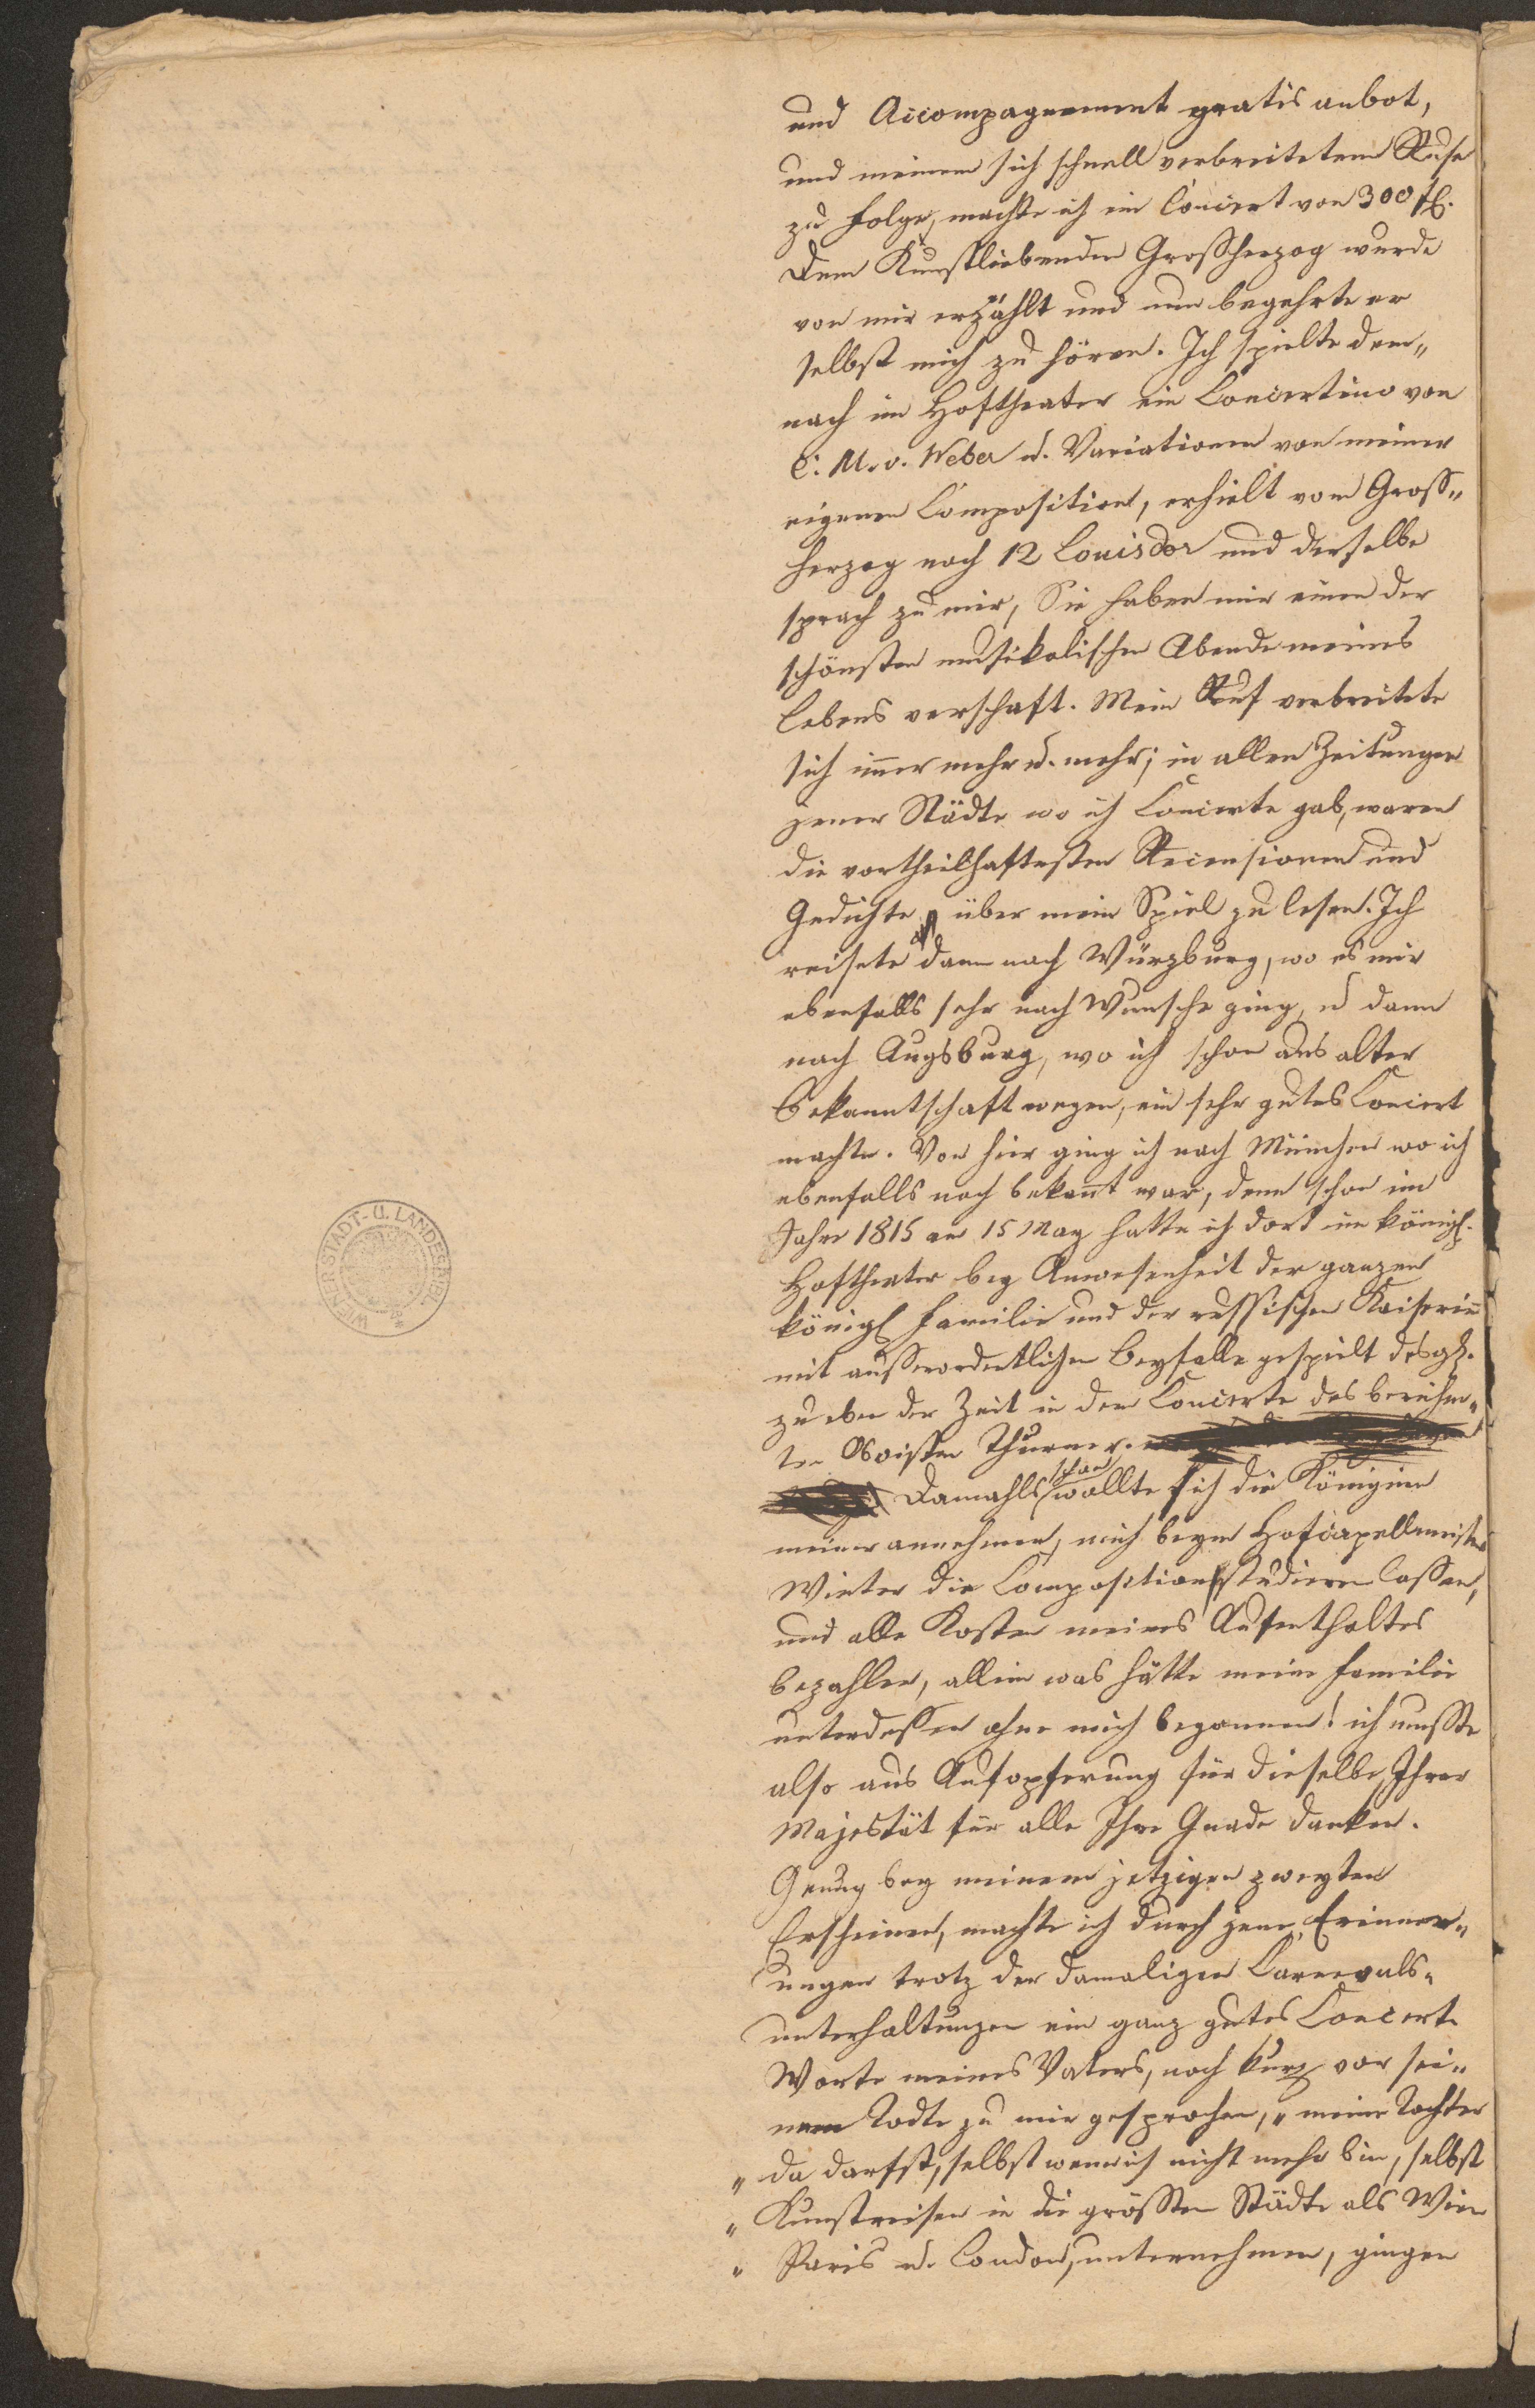 und Accompagnement gratis anbot,
und meinem sich schnell verbreitetem Rufe
zu Folge, machte ich ein Concert von 300 fl.
Dem Kunstliebenden Grossherzog wurde
von mir erzählt und nun begehrte er
selbst mich zu hören. Ich spielte dem„
nach im Hoftheater ein Concertino von
C. M. v. Weber u. Variationen von meiner
eigenen Composition, erhielt vom Gross„
herzog noch 12 Louisdor und derselbe
sprach zu mir, Sie haben mir einen der
schönsten musikalischen Abende meines
Lebens verschaft. Mein Ruf verbreitete
sich immer mehr u. mehr; in allen Zeitungen
jener Städte wo ich Concerte gab, waren
die vortheilhaftesten Recensionen und
Gedichte über mein Spiel zu lesen. Ich
reisete dann nach Würzburg, wo es mir
ebenfalls sehr nach Wunsche ging, u dann
nach Augsburg, wo ich schon aus alter
Bekanntschaft wegen, ein sehr gutes Concert
machte. Von hier ging ich nach München wo ich
ebenfalls noch bekannt war, denn schon im
Jahre 1815 am 15 May hatte ich dort im königl.
Hoftheater bey Anwesenheit der ganzen
königl Familie und der russischen Kaiserinn
mit ausserordentlichen Beyfalle gespielt desgl.
zu eben der Zeit in dem Concerte des berühm„
ten Oboisten Thurner.
Damahls schon wollte sich die Königinn
meiner annehmen, mich beym Hofcapellmeister
Winter die Composition studieren lassen,
und alle Kosten meines Aufenthaltes
bezahlen, allein was hätte meine Familie
unterdessen ohne mich begonnen! ich musste
also aus Aufopferung für dieselbe, Ihrer
Majestät für alle Ihre Gnade danken.
Genug bey meinem jetzigen zweyten
Erscheinen, machte ich durch jene Erinner„
ungen trotz der damaligen Carnevals„
unterhaltungen ein ganz gutes Concert.
Worte meines Vaters, noch kurz vor sei„
nem Todte zu mir gesprochen, „ meine Tochter
„ du darfst, selbst wenn ich nicht mehr bin, selbst
„ Kunstreisen in die grössten Städte als Wien
„ Paris u. London, unternehmen, gingen
WIENER STADT- U. LANDESBIBL.